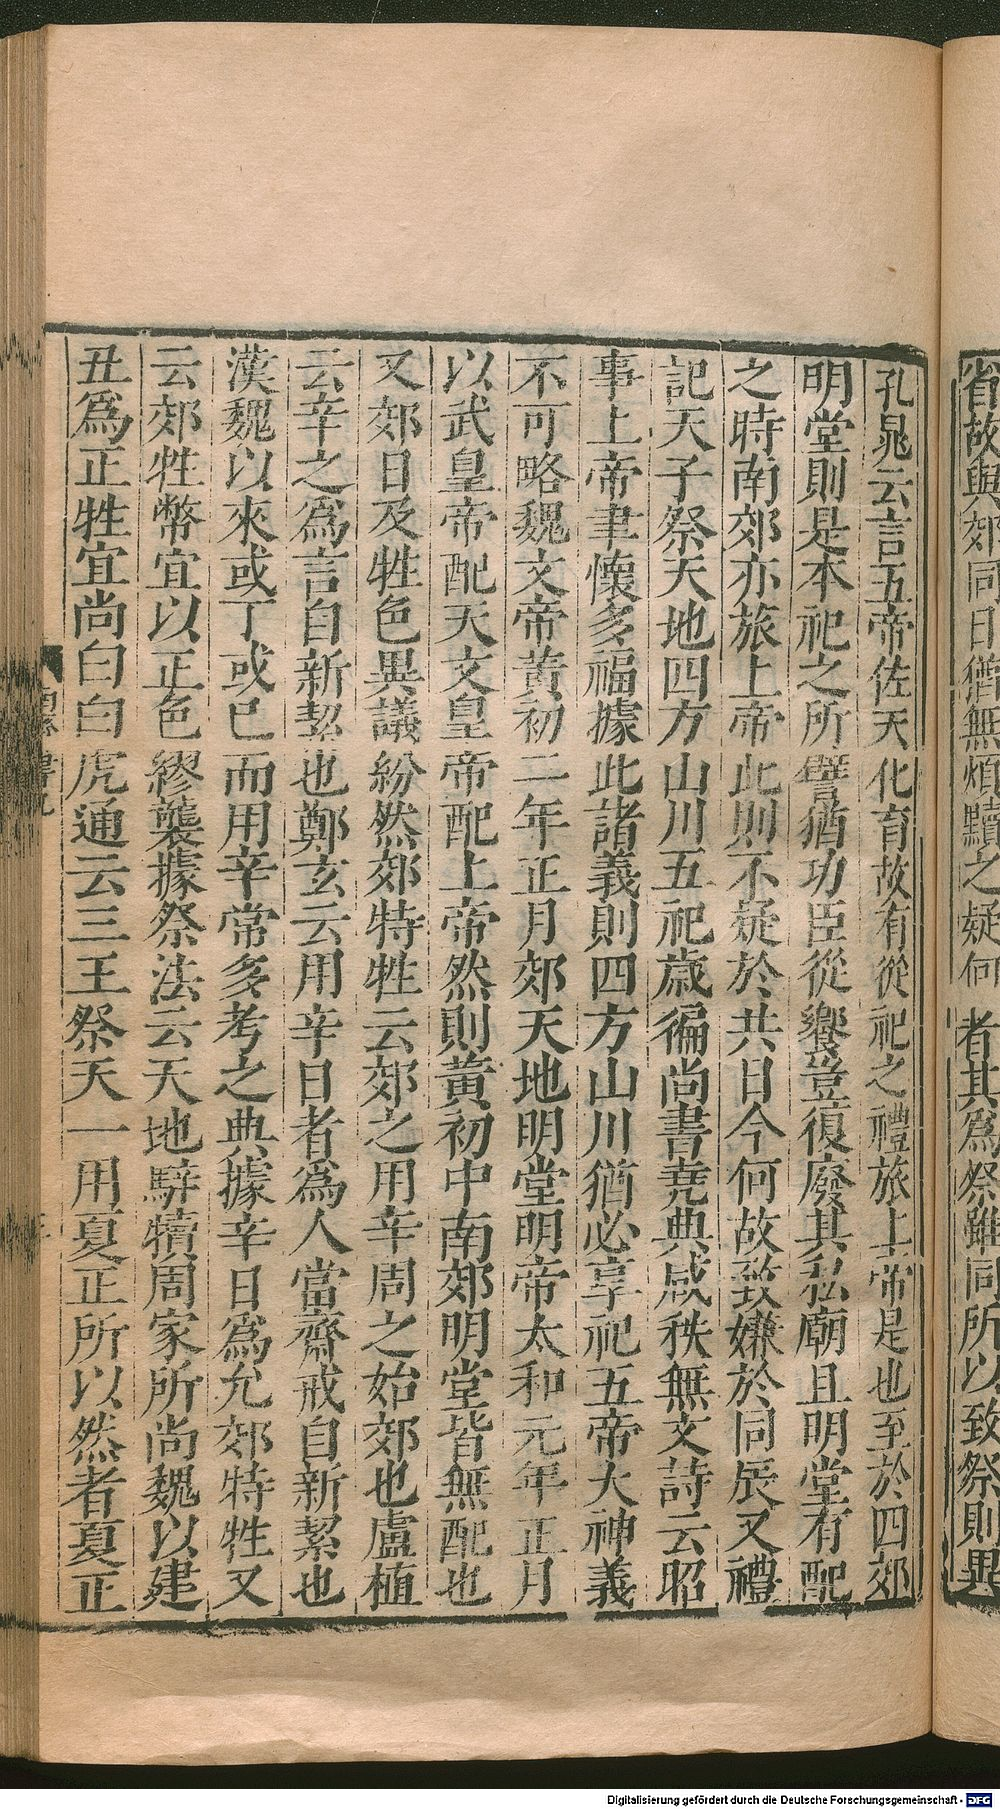 省故與郊同日猶無煩黷之疑何者其爲祭雖同所以致祭則異
孔晁云言五帝佐天化育故有從祀之禮旅上帝是也至於四郊
明堂則是本祀之所譬猶功臣從饗豈復廢其私廟且明堂有配
之時南郊亦旅上帝此則不疑於共日今何故致嫌於同辰又禮
記天子祭天地四方山川五祀歲徧尚書堯典咸秩無文詩云昭
事上帝聿懷多福據此諸義則四方山川猶必享祀五帝大神義
不可略魏文帝黃初二年正月郊天地明堂明帝太和元年正月
以武皇帝配天文皇帝配上帝然則黃初中南郊明堂皆無配也
又郊日及牲色異議紛然郊特牲云郊之用辛周之始郊也盧植
云辛之爲言自新絜也鄭玄云用辛日者爲人當齋戒自新絜也
漢魏以來或丁或巳而用辛常多考之典據辛日爲允郊特牲又
云郊牲幣宜以正色繆襲據祭法云天地騂犢周家所尚魏以建
丑爲正牲宜尚白白虎通云三王祭天一用夏正所以然者夏正
南齊書九
Digitalisierung gefördert durch die Deutsche Forschungsgemeinschaft - DFG